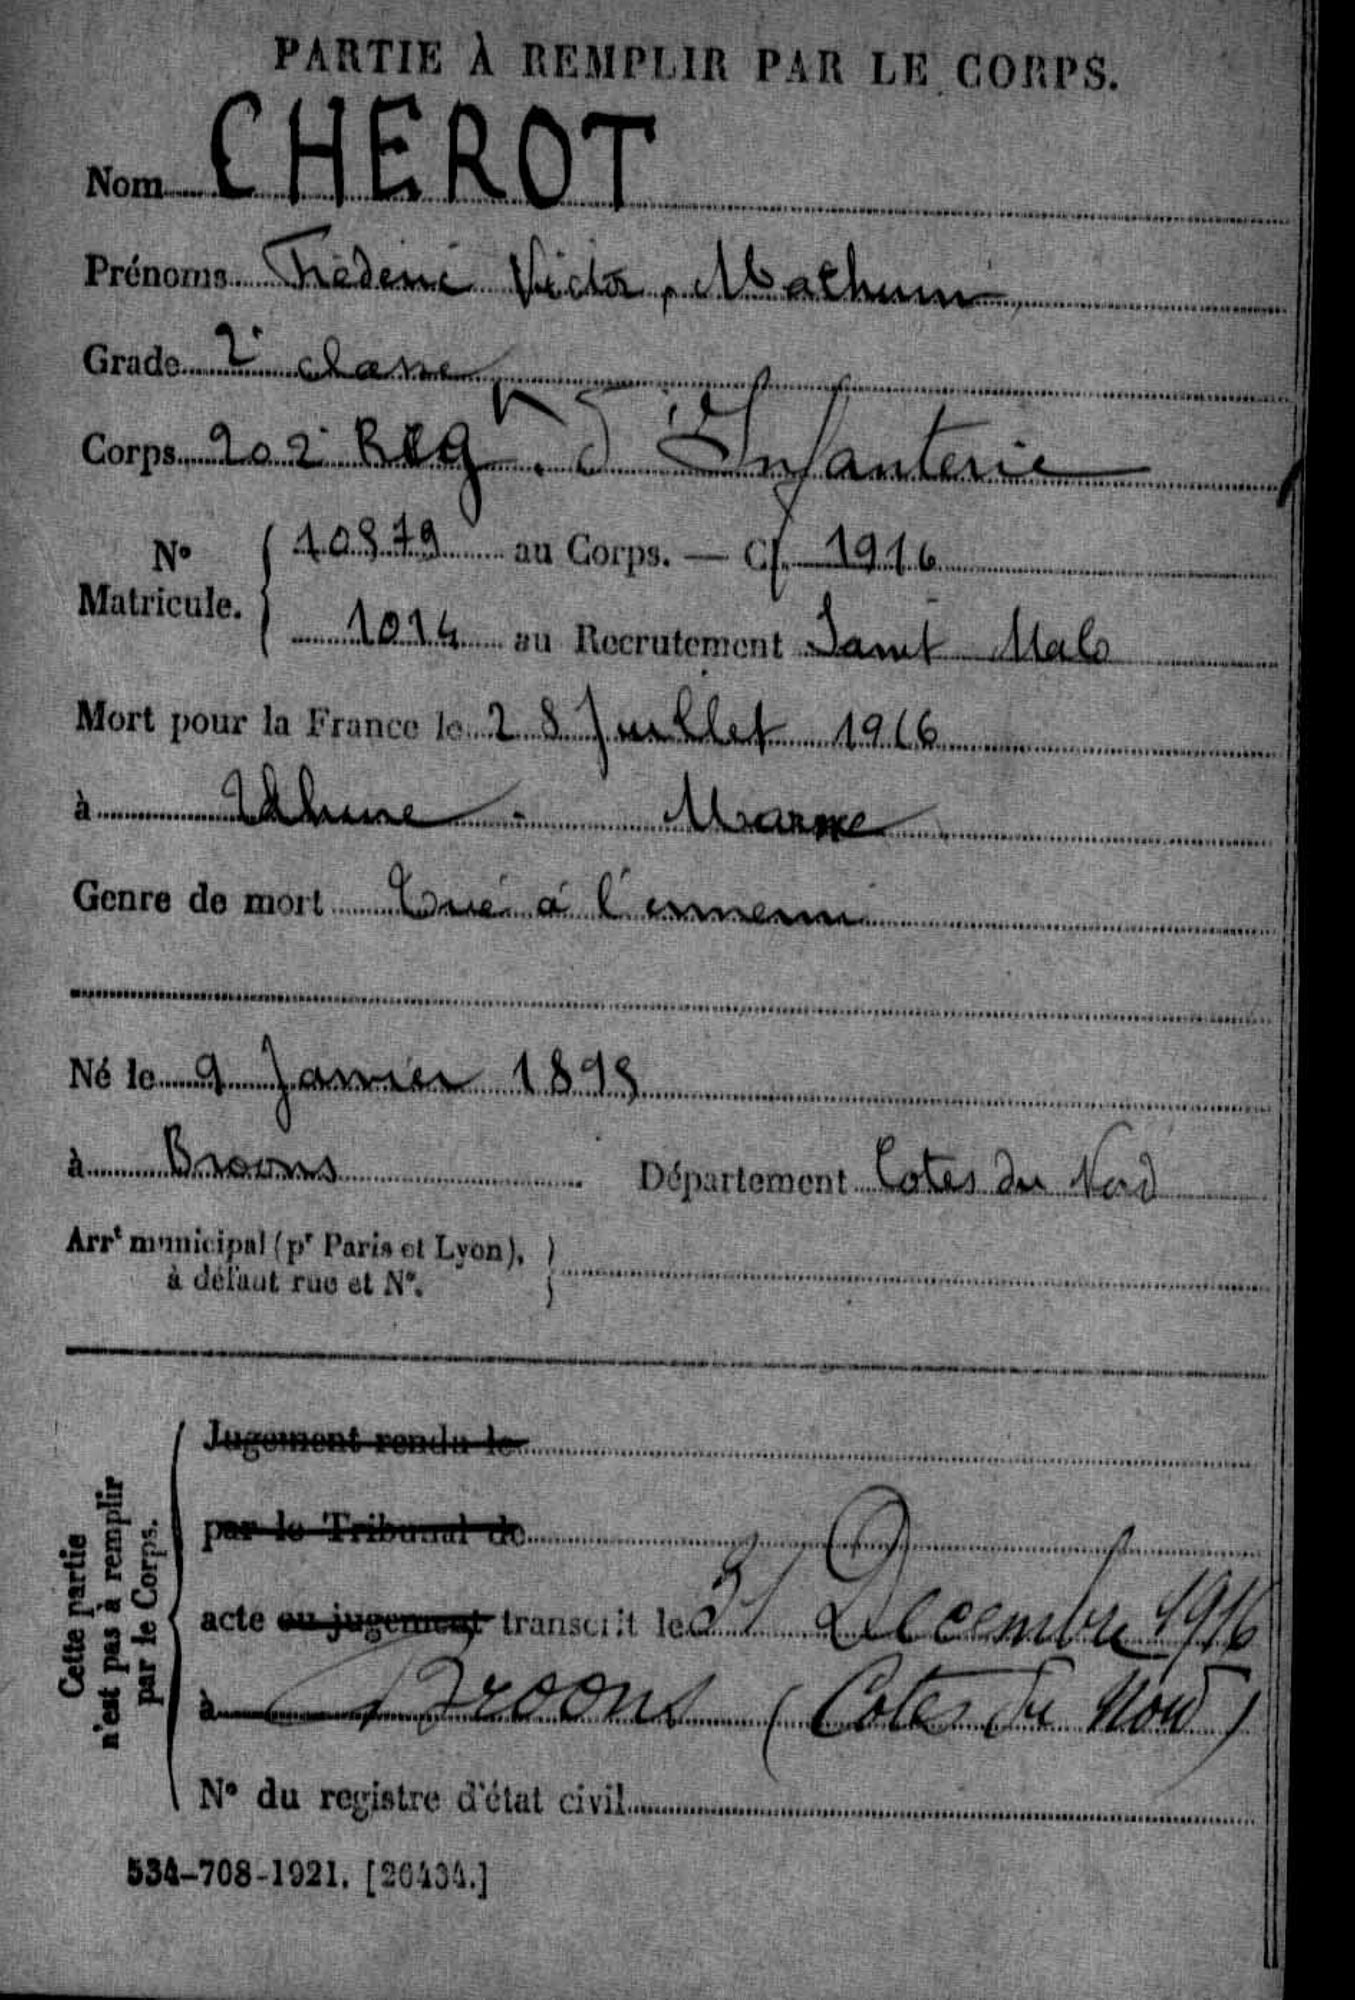 PARTIE À REMPLIR PAR LE CORPS.
Nom CHEROT
Prénoms Frédéric Victor, Mathurin
Grade 2e classe
Corps 202e Régt d'Infanterie
No Matricule. 10879 au Corps. — Cl. 1916
1014 au Recrutement Saint Malo
Mort pour la France le 28 Juillet 1916
à Marne
Genre de mort Tué à l'ennemi
Né le 9 Janvier 189
à Broons Département Cotes du Nord
Arrt municipal (pr Paris et Lyon),
à défaut rue et No.
Cette partie
n'est pas à remplir
par le Corps.
Jugement rendu le
par le Tribunal de
acte ou jugement transcrit le 31 Decembre 1916
à Broons (Cotes du Nord)
No du registre d'état civil
534-708-1921. [26434.]